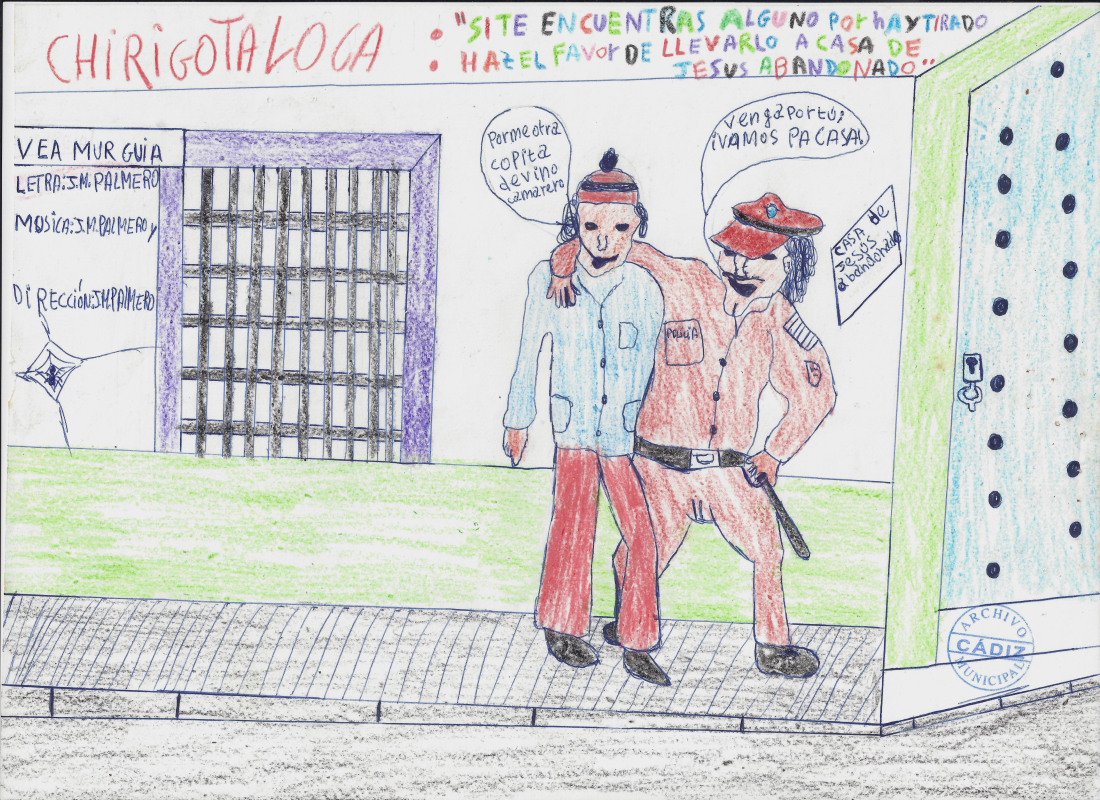 CHIRIGOTA LOCA
: "SI TE ENCUENTRAS ALGUNO POR hAY TIRADO
HAZ EL FAVOR DE LLEVARLO A CASA DE
JESUS ABANDONADO"
VEA MURGUIA
LETRA: J.M. PALMERO
MUSICA: J.M. PALMERO y
DIRECCIÓN: J.M PALMERO
Pormeotra
copita
devino
camarero
Venga Portú,
¡VAMOS PA CASA!
CASA de
Jesús
abandonado
POLICIA
ARCHIVO
CÁDIZ
MUNICIPAL